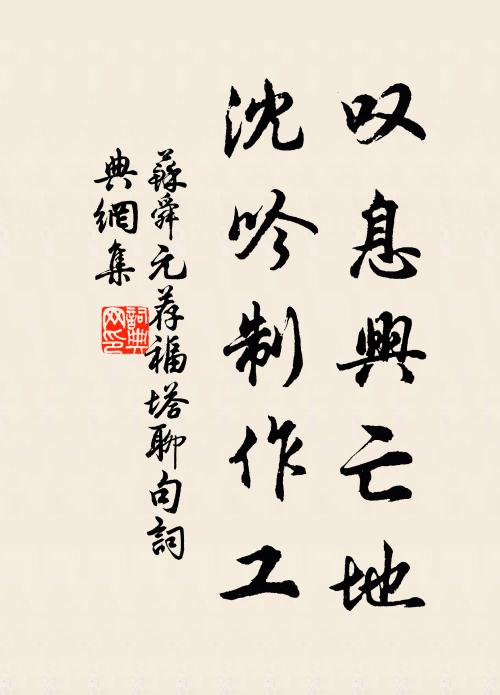 叹息興亡地
沈吟制作工
蘇舜元荐福塔聊句詞
典網集
詞典
网印